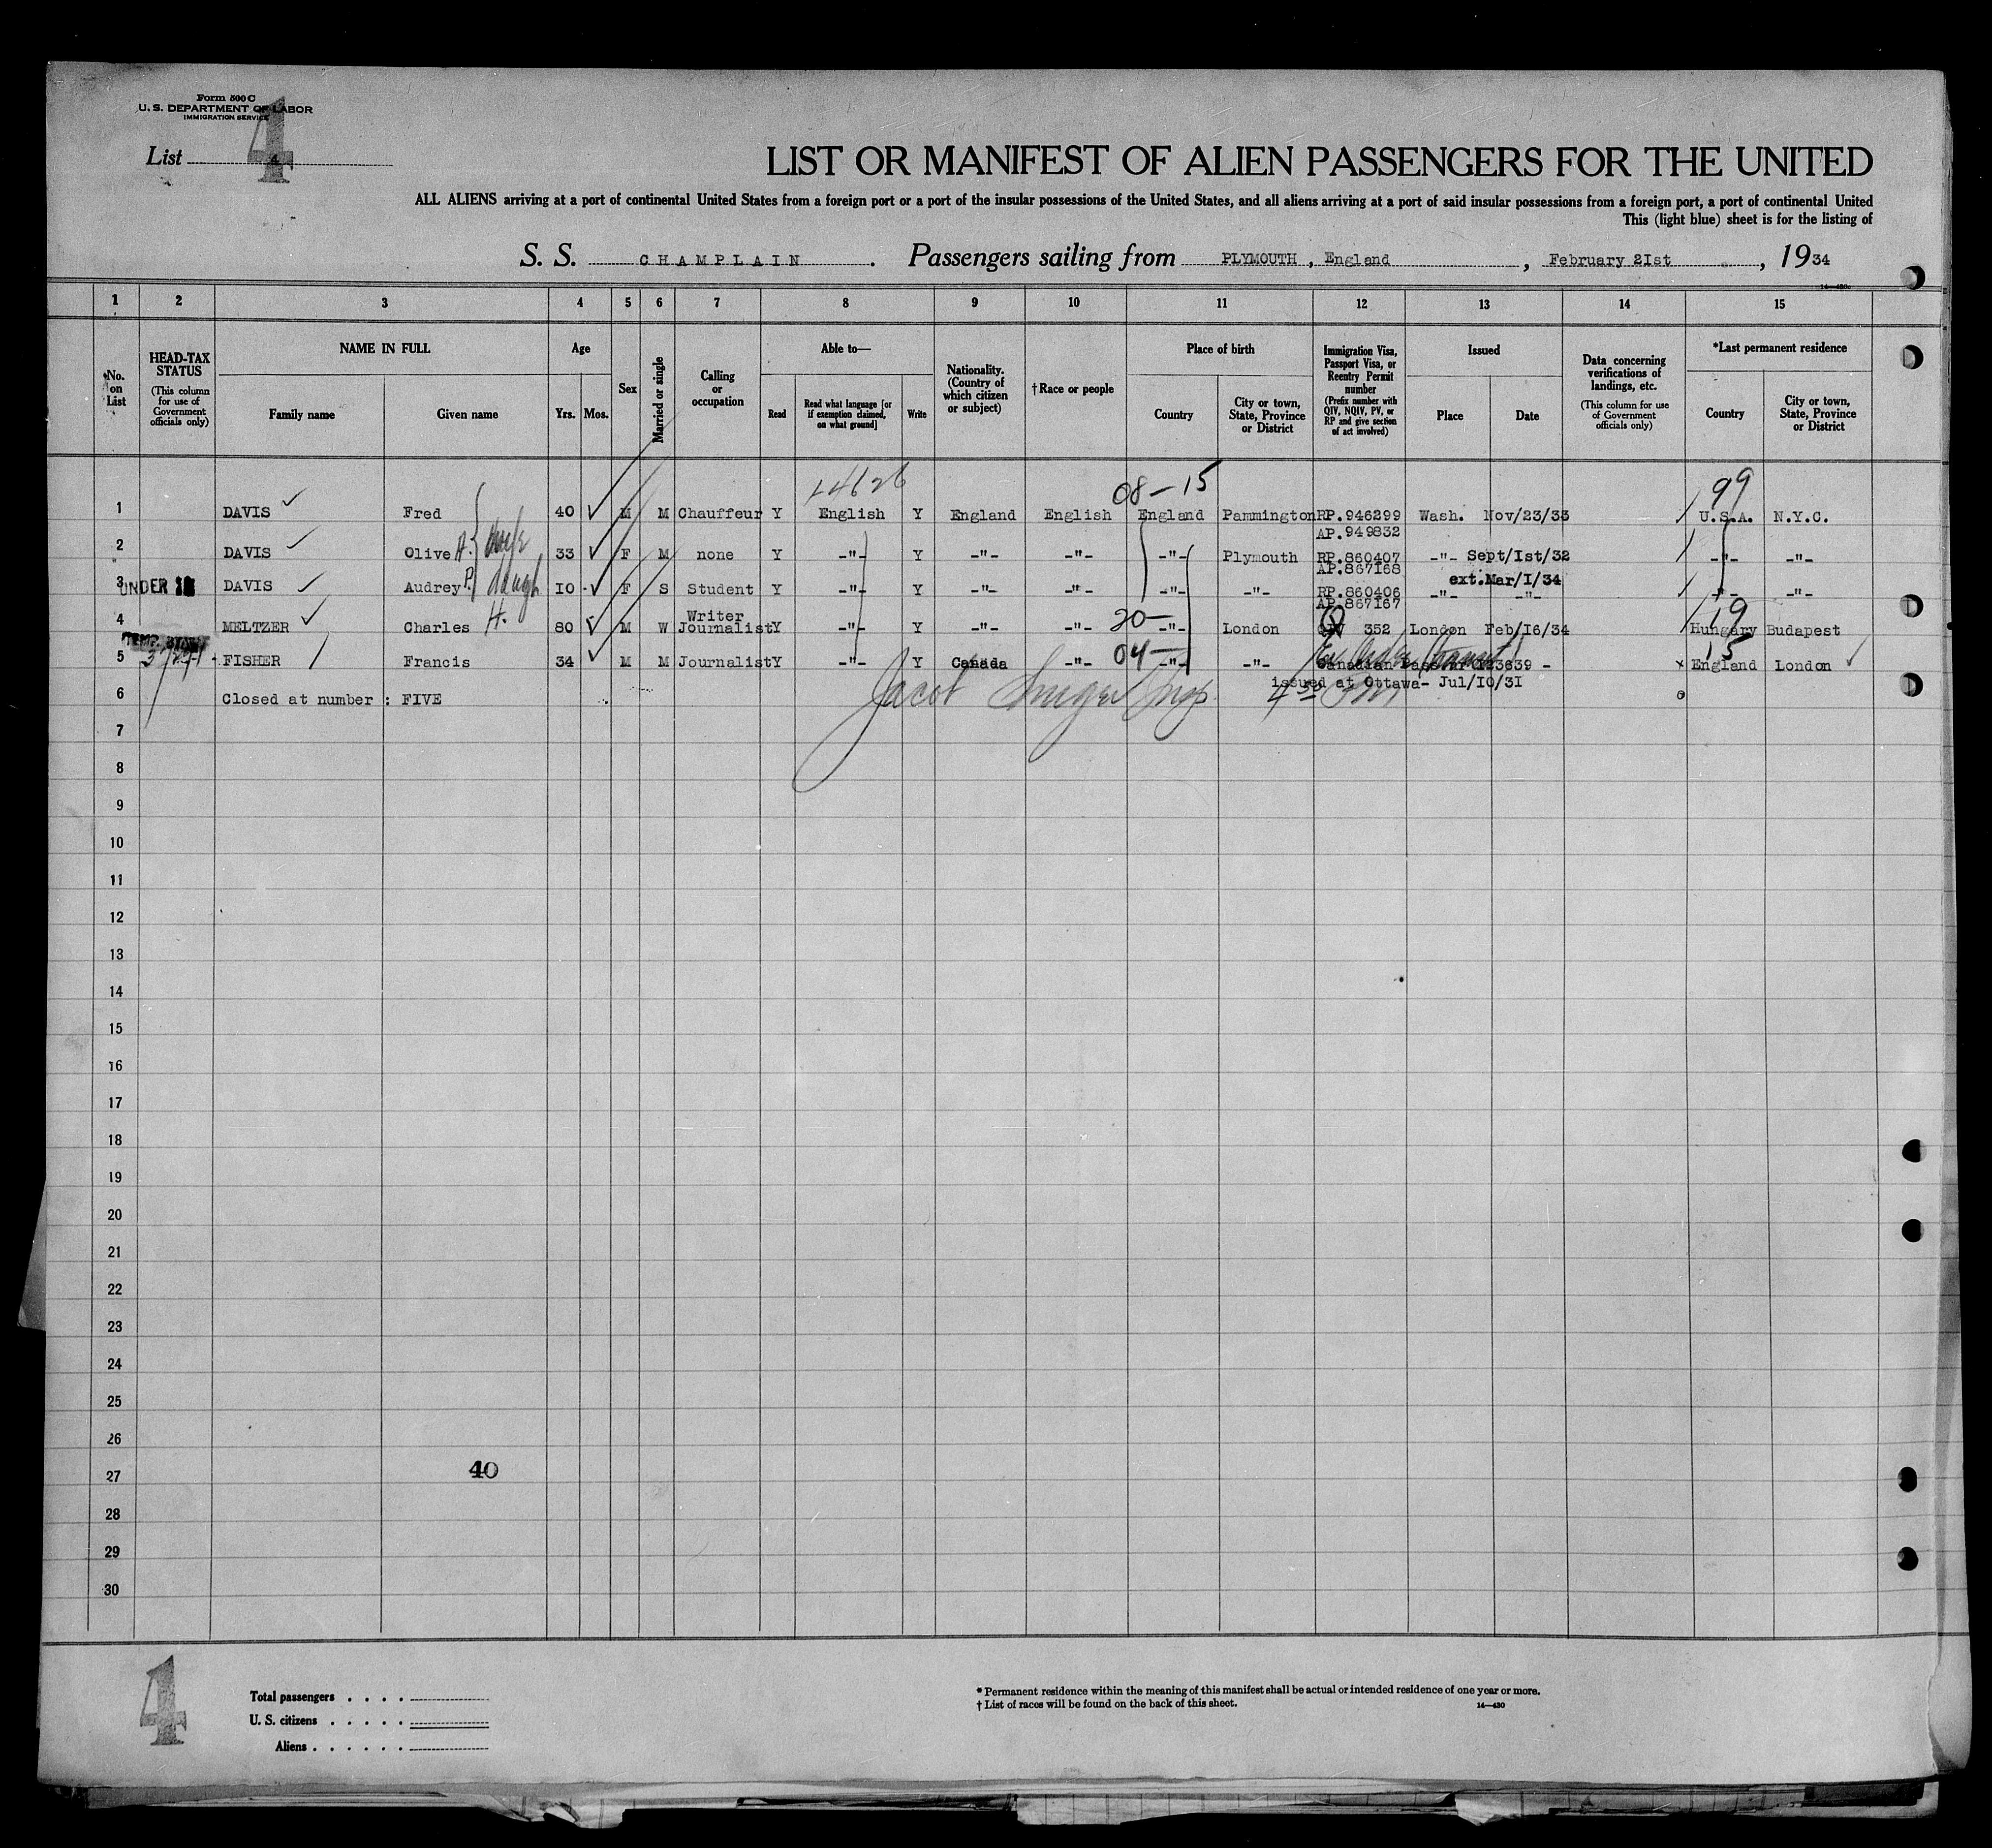 Form 500 C
U. S. DEPARTMENT OF LABOR
IMMIGRATION SERVICE
4
List 4
LIST OR MANIFEST OF ALIEN PASSENGERS FOR THE UNITED
ALL ALIENS arriving at a port of continental United States from a foreign port or a port of the insular possessions of the United States, and all aliens arriving at a port of said insular possessions from a foreign port, a port of continental United
This (light blue) sheet is for the listing of
S. S. CHAMPLAIN. Passengers sailing from PLYMOUTH, England, February 21st, 1934
1 2 3 4 5 6 7 8 9 10 11 12 13 14 15
No. on List
HEAD-TAX STATUS
(This column for use of Government officials only)
NAME IN FULL
Family name
Given name
Age
Yrs.
Mos.
Sex
Married or single
Calling or occupation
Able to—
Read
Read what language [or if exemption claimed, on what ground]
Write
Nationality. (Country of which citizen or subject)
†Race or people
Place of birth
Country
City or town, State, Province or District
Immigration Visa, Passport Visa, or Reentry Permit number
(Prefix number with QIV, NQIV, PV, or RP and give section of act involved)
Issued
Place
Date
Data concerning verifications of landings, etc.
(This column for use of Government officials only)
*Last permanent residence
Country
City or town, State, Province or District
08-15 99
1 DAVIS Fred 40 M M Chauffeur Y English Y England English England Pammington RP.946299 Wash. Nov/23/33 U.S.A. N.Y.C.
AP.949832
2 DAVIS Olive A. wife 33 F M none Y -"- Y -"- -"- -"- Plymouth RP.860407 -"- Sept/Ist/32 -"- -"-
AP.867168 ext.Mar/I/34
3 UNDER DAVIS Audrey P. daugh 10 F S Student Y -"- Y -"- -"- -"- -"- RP.860406 -"- -"- -"- -"-
AP.867167
Writer 20- 19
4 MELTZER Charles H. 80 M W Journalist Y -"- Y -"- -"- -"- London QIV 352 London Feb/I6/34 Hungary Budapest
04- 15
5 FISHER Francis 34 M M Journalist Y -"- Y Canada -"- -"- -"- Canadian Pass nr 123639 - England London
issued at Ottawa- Jul/I0/31
6 Closed at number : FIVE
Jacob
7
8
9
10
11
12
13
14
15
16
17
18
19
20
21
22
23
24
25
26
27 40
28
29
30
4
Total passengers
U. S. citizens
Aliens
* Permanent residence within the meaning of this manifest shall be actual or intended residence of one year or more.
† List of races will be found on the back of this sheet.
14—430